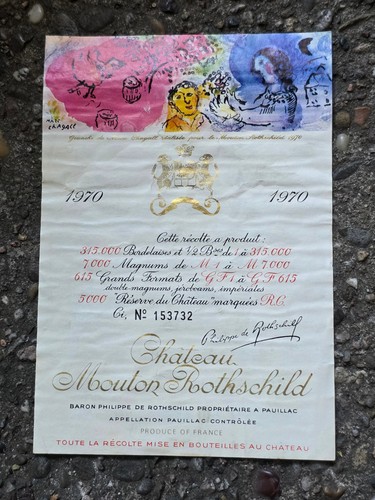 Marc
Chagall
1970
1970
Cette récolte a produit :
315.000 Bordelaises et 1/2 Bses de 1 à 315.000
7.000 Magnums de M 1 à M 7.000
615 Grands Formats de G F 1 à G F 615
double-magnums, jéroboams, impériales
5000 "Réserve du Château" marquées R.C.
Ci, No 153732
Philippe de Rothschild
Château
Mouton Rothschild
BARON PHILIPPE DE ROTHSCHILD PROPRIÉTAIRE A PAUILLAC
APPELLATION PAUILLAC CONTRÔLÉE
PRODUCE OF FRANCE
TOUTE LA RÉCOLTE MISE EN BOUTEILLES AU CHÂTEAU